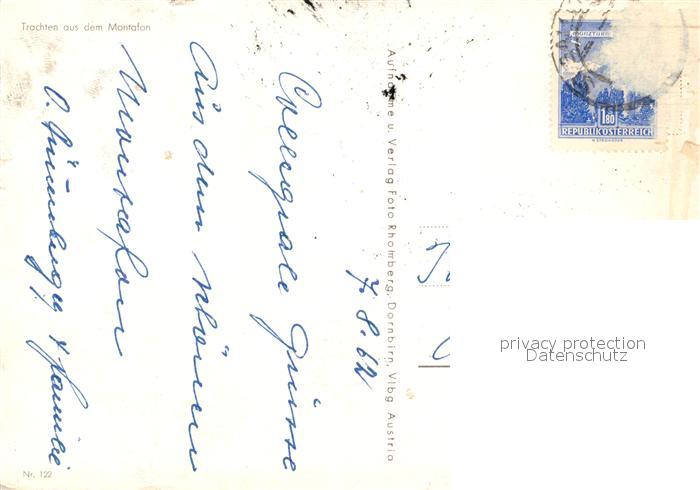 Trachten aus dem Montafon
7. 8. 62
Collegiale Grüsse
Aus dem schönen
Montafon
& Familie
Nr. 122
Aufnahme u. Verlag Foto Rhomberg, Dornbirn, Vlbg. Austria
1.80
REPUBLIK ÖSTERREICH
privacy protection
Datenschutz